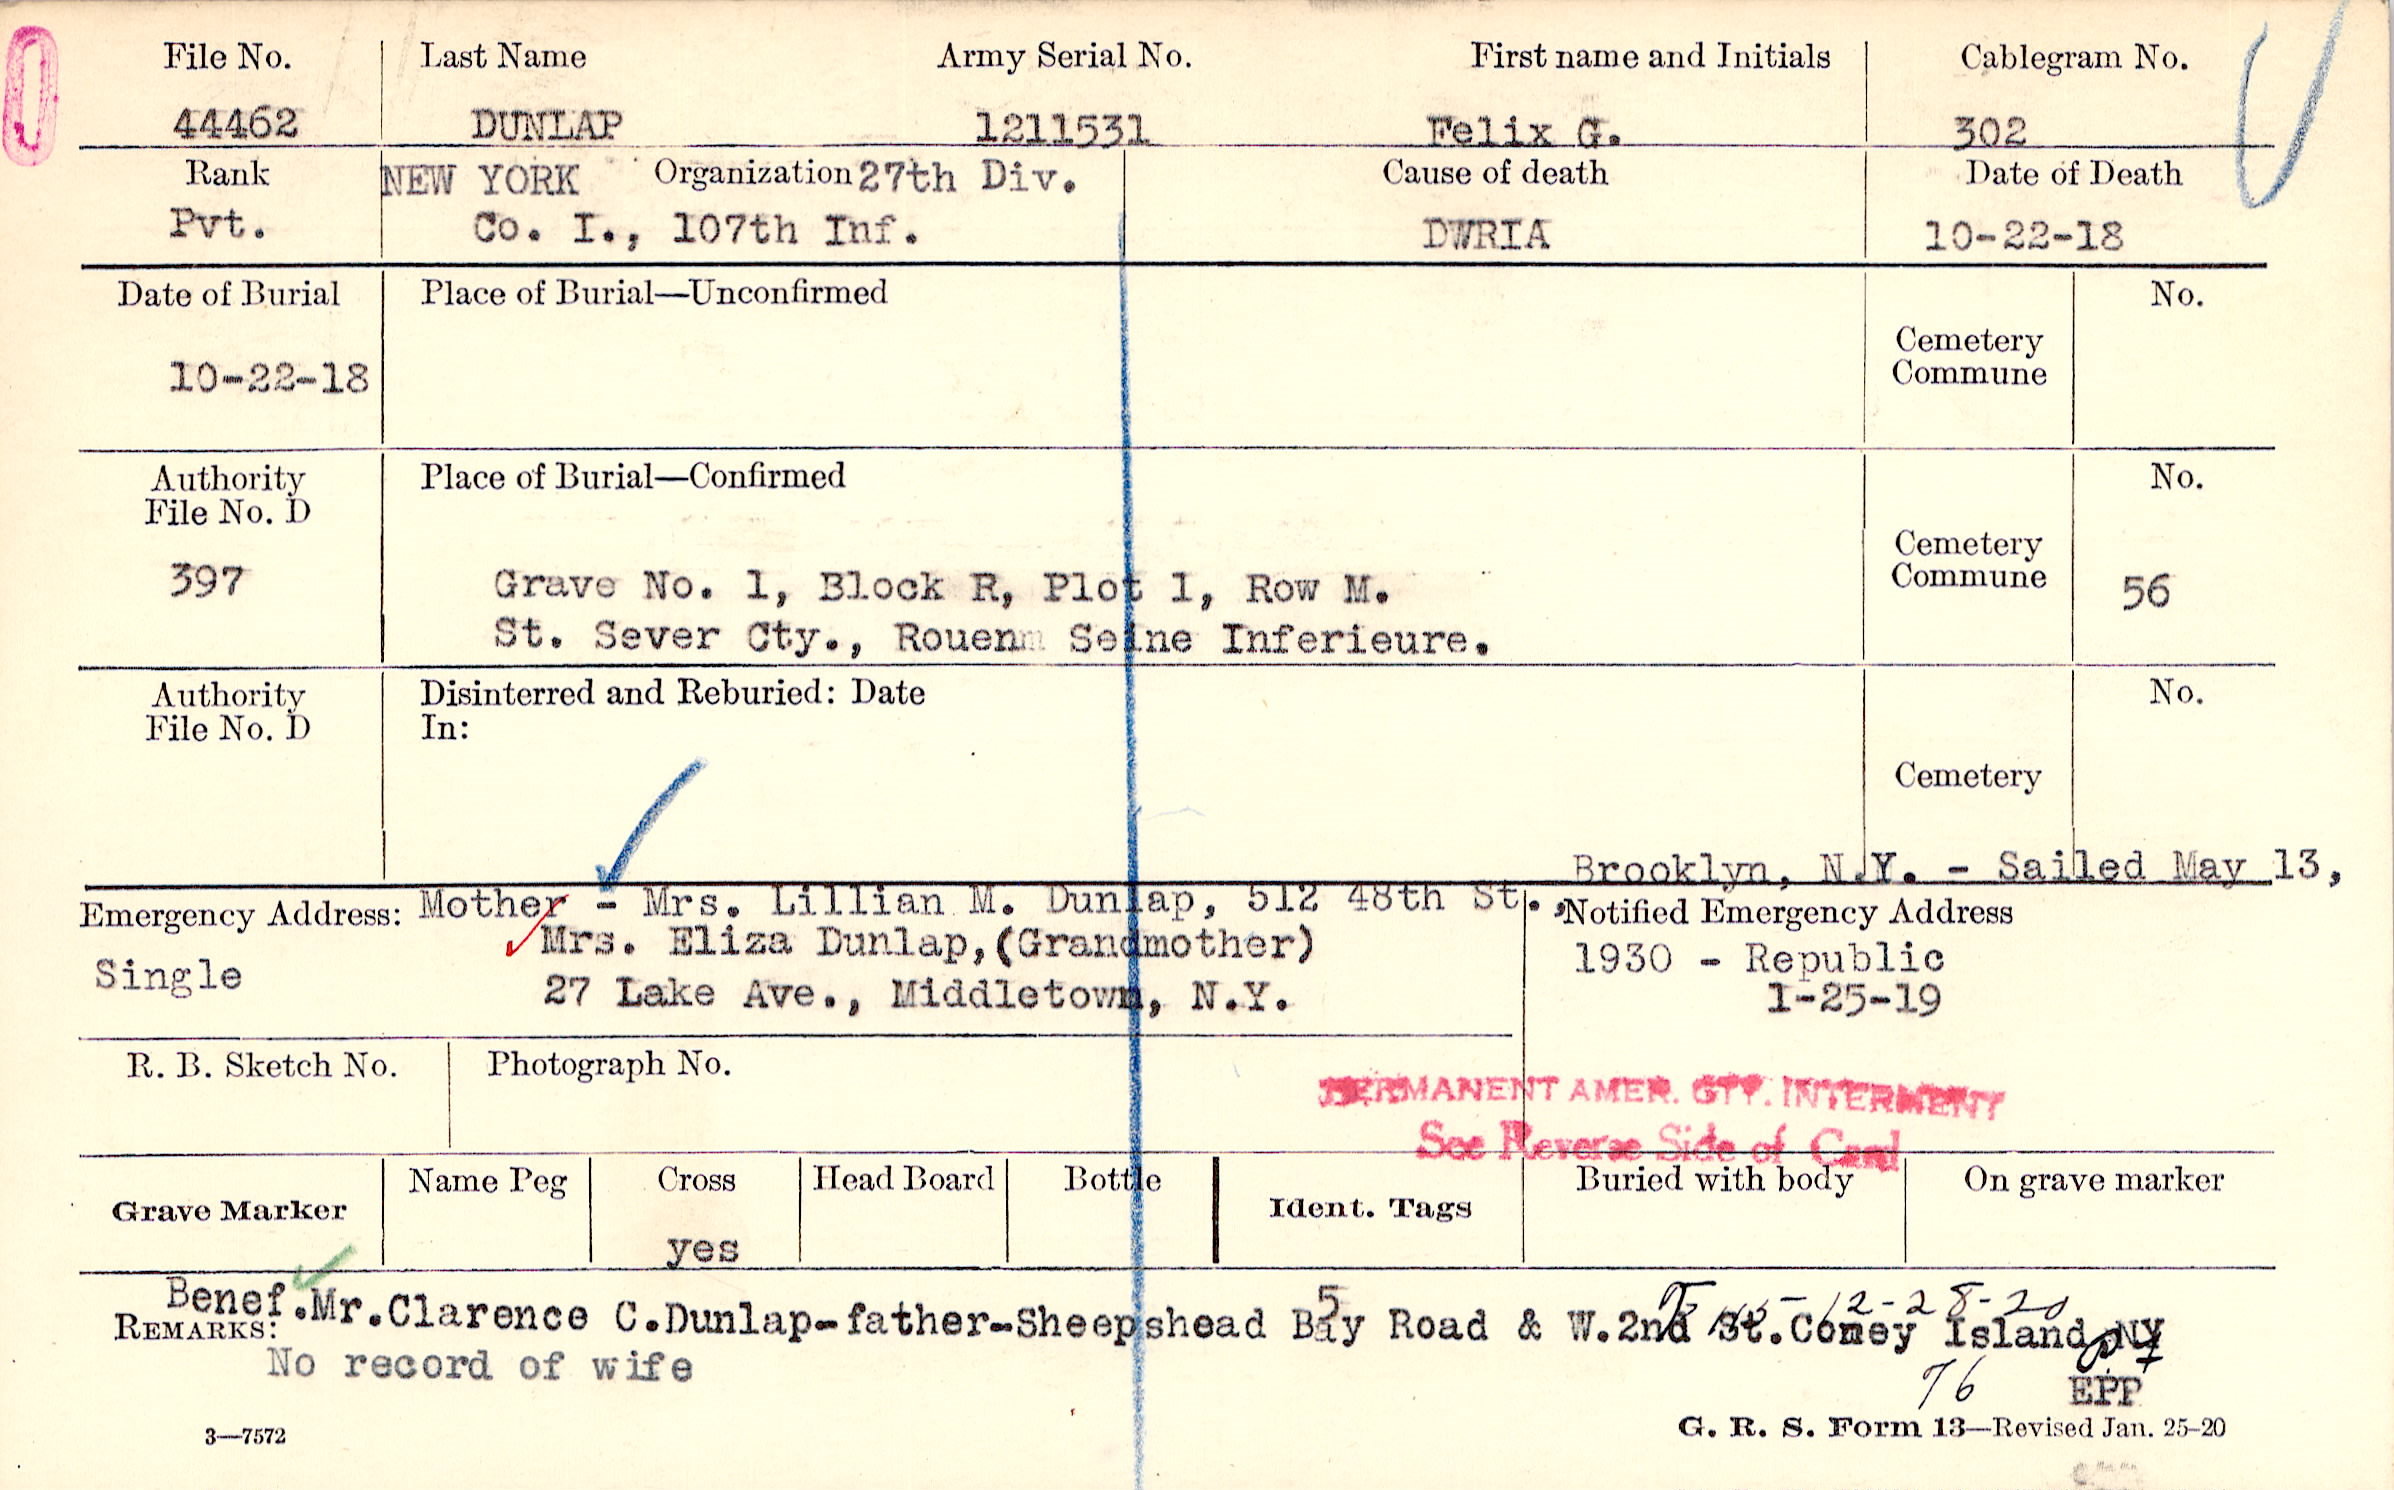 File No. Last Name Army Serial No. First name and Initials Cablegram No.
44462 DUNLAP 1211531 Felix G. 302
Rank NEW YORK Organization 27th Div. Cause of death Date of Death
Pvt. Co. I., 107th Inf. DWRIA 10-22-18
Date of Burial Place of Burial—Unconfirmed No.
Cemetery
Commune
10-22-18
Authority Place of Burial—Confirmed No.
File No. D
Cemetery
397 Grave No. 1, Block R, Plot 1, Row M. Commune 56
St. Sever Cty., Rouen Seine Inferieure.
Authority Disinterred and Reburied: Date No.
File No. D In:
Cemetery
Brooklyn, N.Y. - Sailed May 13,
Emergency Address: Mother - Mrs. Lillian M. Dunlap, 512 48th St., Notified Emergency Address
Mrs. Eliza Dunlap,(Grandmother) 1930 - Republic
Single 27 Lake Ave., Middletown, N.Y. 1-25-19
R. B. Sketch No. Photograph No.
PERMANENT AMER. CTY. INTERMENT
See Reverse Side of Card
Grave Marker Name Peg Cross Head Board Bottle Ident. Tags Buried with body On grave marker
yes
Benef.Mr.Clarence C.Dunlap-father-Sheepshead Bay Road & W.2nd St.Coney Island NY
5
12-28-20
REMARKS:
No record of wife
76 EPP
3—7572 G. R. S. Form 13—Revised Jan. 25-20